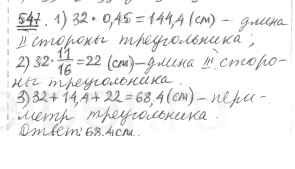 547. 1) 32 · 0,45 = 144,4 (см) – длина
II стороны треугольника;
2) 32 · 11/16 = 22 (см) – длина III сторо-
ны треугольника.
3) 32 + 14,4 + 22 = 68,4 (см) – пери-
метр треугольника.
Ответ: 68,4 см.